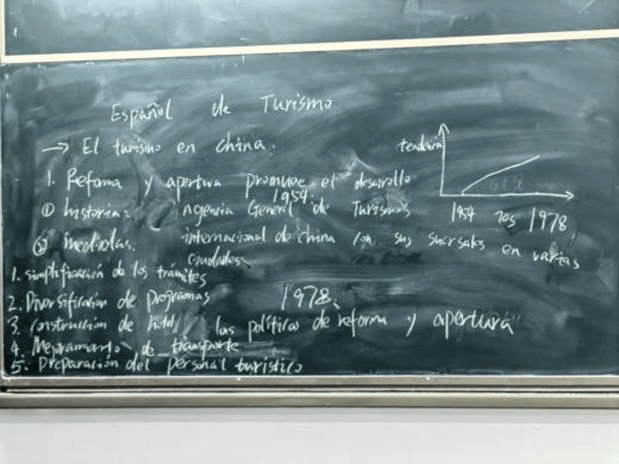 Español de Turismo
→ El turismo en china.
1. Reforma y apertura promueve el desarrollo
① historia: 1954: Agencia General de Turismos
internacional de china con sus sucursales en varias
ciudades.
② medidas:
1. simplificación de los trámites
2. Diversificación de programas
3. construcción de hotel
4. Mejoramiento de transporte
5. preparación del personal turístico
1978: las políticas de reforma y apertura
tendencia
1954 1978